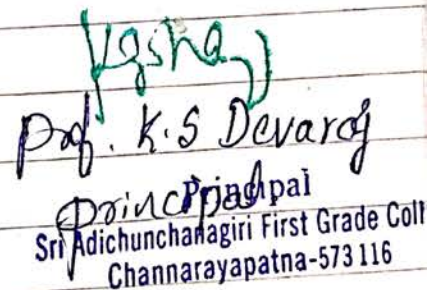 Prof. K.S Devaraj
principal
Principal
Sri Adichunchanagiri First Grade Coll
Channarayapatna-573 116